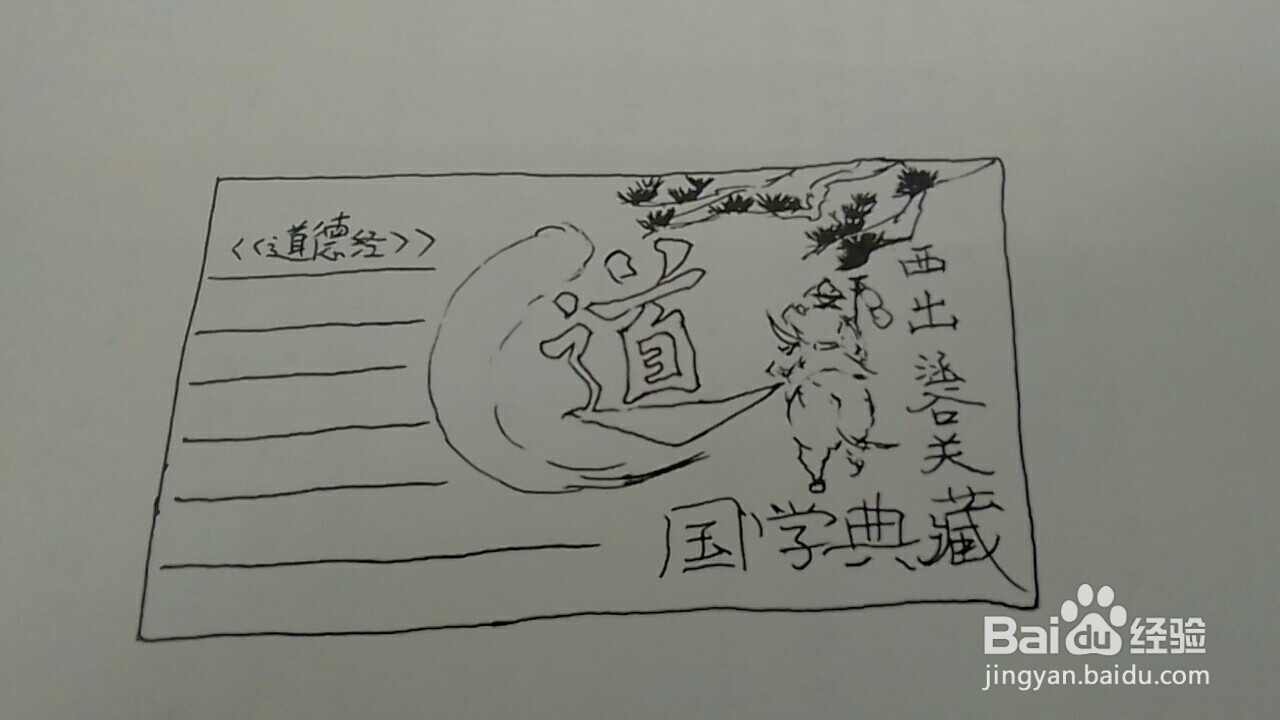 <<道德经>>
道
西出涵谷关
国学典藏
Baidu经验
jingyan.baidu.com